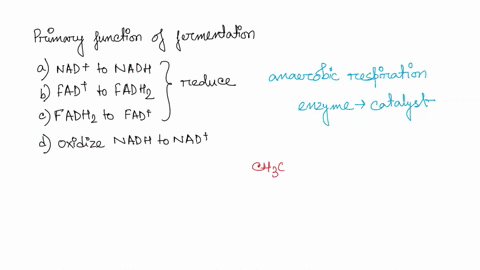 Primary function of fermentation
a) NAD+ to NADH
b) FAD+ to FADH2
c) FADH2 to FAD+
reduce
d) oxidize NADH to NAD+
anaerobic respiration
enzyme → catalyst
CH3C